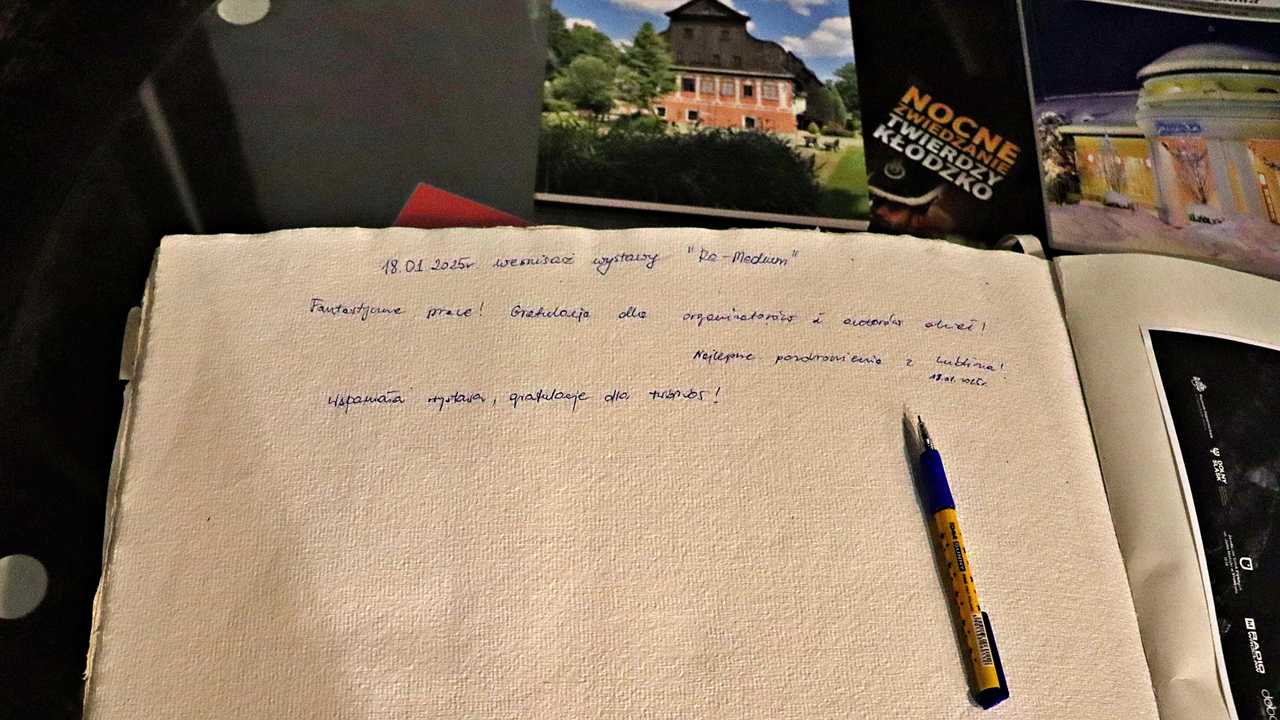 NOCNE
ZWIEDZANIE
TWIERDZY
KŁODZKO
18.01.2025r wernisaż wystawy "Re-Medium"
Fantastyczne prace! Gratulacje dla organizatorów i autorów dzieł!
Najlepsze pozdrowienia z Lublina!
18.01.2025r.
Wspaniała wystawa, gratulacje dla twórców!
DOLNY
ŚLĄSK
RADIO